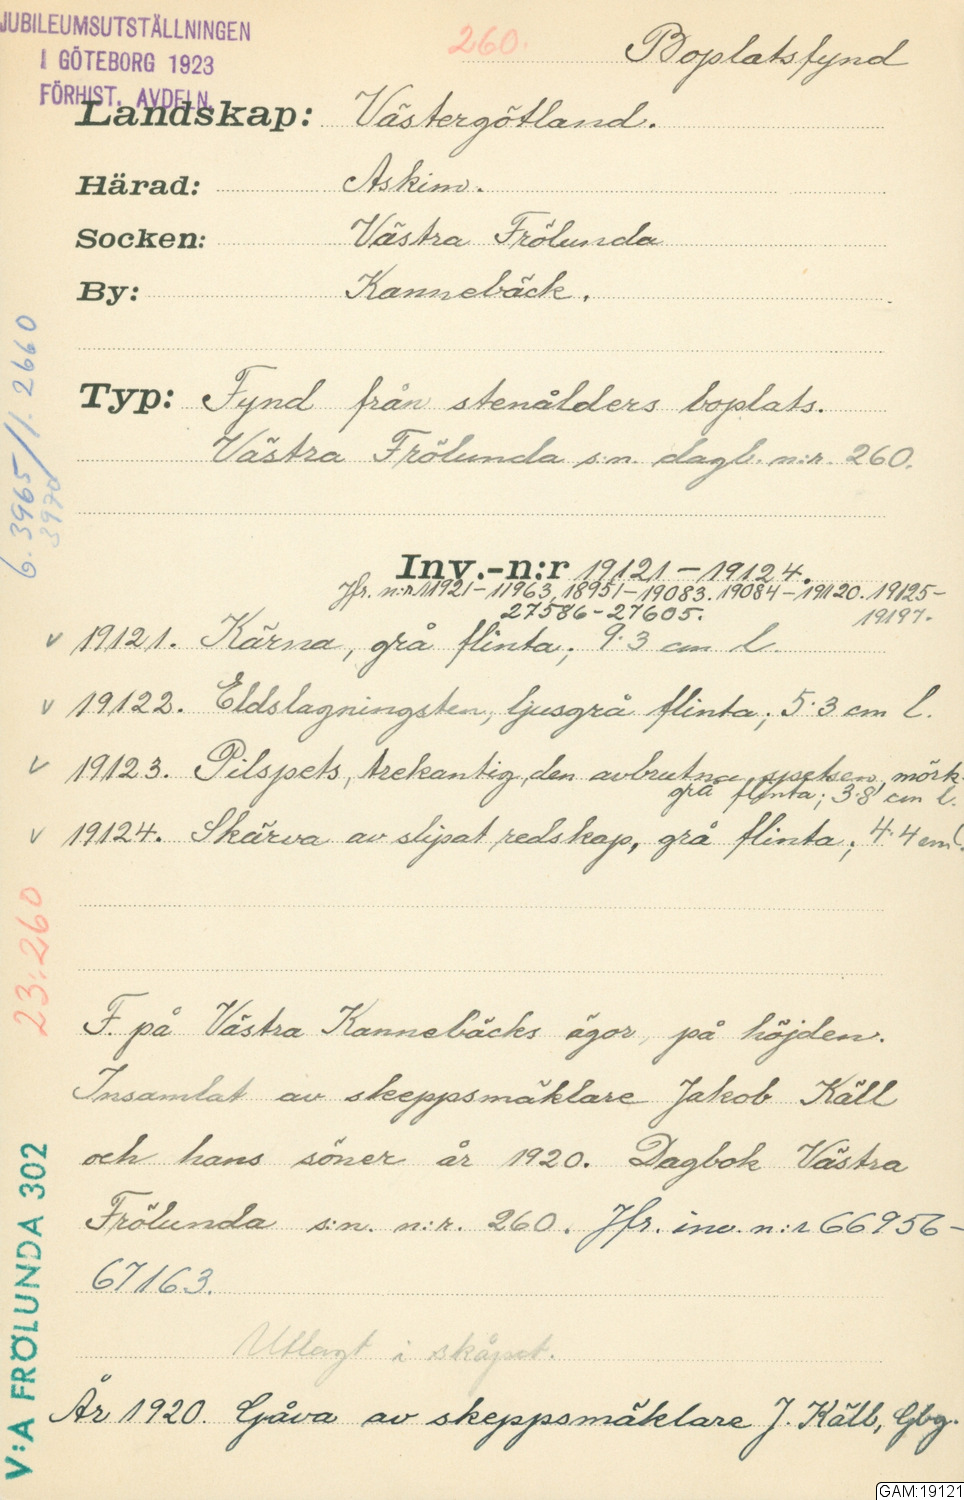 JUBILEUMSUTSTÄLLNINGEN
I GÖTEBORG 1923
FÖRHIST. AVDELN.
260.
Boplatsfynd
Landskap: Västergötland.
Härad: Askim.
Socken: Västra Frölunda
By: Kannebäck.
Typ: Fynd från stenålders boplats.
Västra Frölunda s:n. dagb. n:r. 260.
Inv.-n:r 19121–19124.
Jfr. n:r 11921–11963, 18951–19083. 19084–19120. 19125–
19197.
27586–27605.
v 19121. Kärna, grå flinta; 9.3 cm l.
v 19122. Eldslagningsten, ljusgrå flinta; 5.3 cm l.
v 19123. Pilspets, trekantig, den avbrutna spetsen, mörk-
grå flinta; 3.8 cm l.
v 19124. Skärva av slipat redskap, grå flinta; 4.4 cm l.
F. på Västra Kannebäcks ägor, på höjden.
Insamlat av skeppsmäklare Jakob Käll
och hans söner år 1920. Dagbok Västra
Frölunda s:n. n:r. 260. Jfr. inv. n:r 66956–
67163.
Utlagt i skåpet.
År 1920. Gåva av skeppsmäklare J. Käll, Gbg.
6.3965/1.2660
23:260
V:A FRÖLUNDA 302
GAM:19121